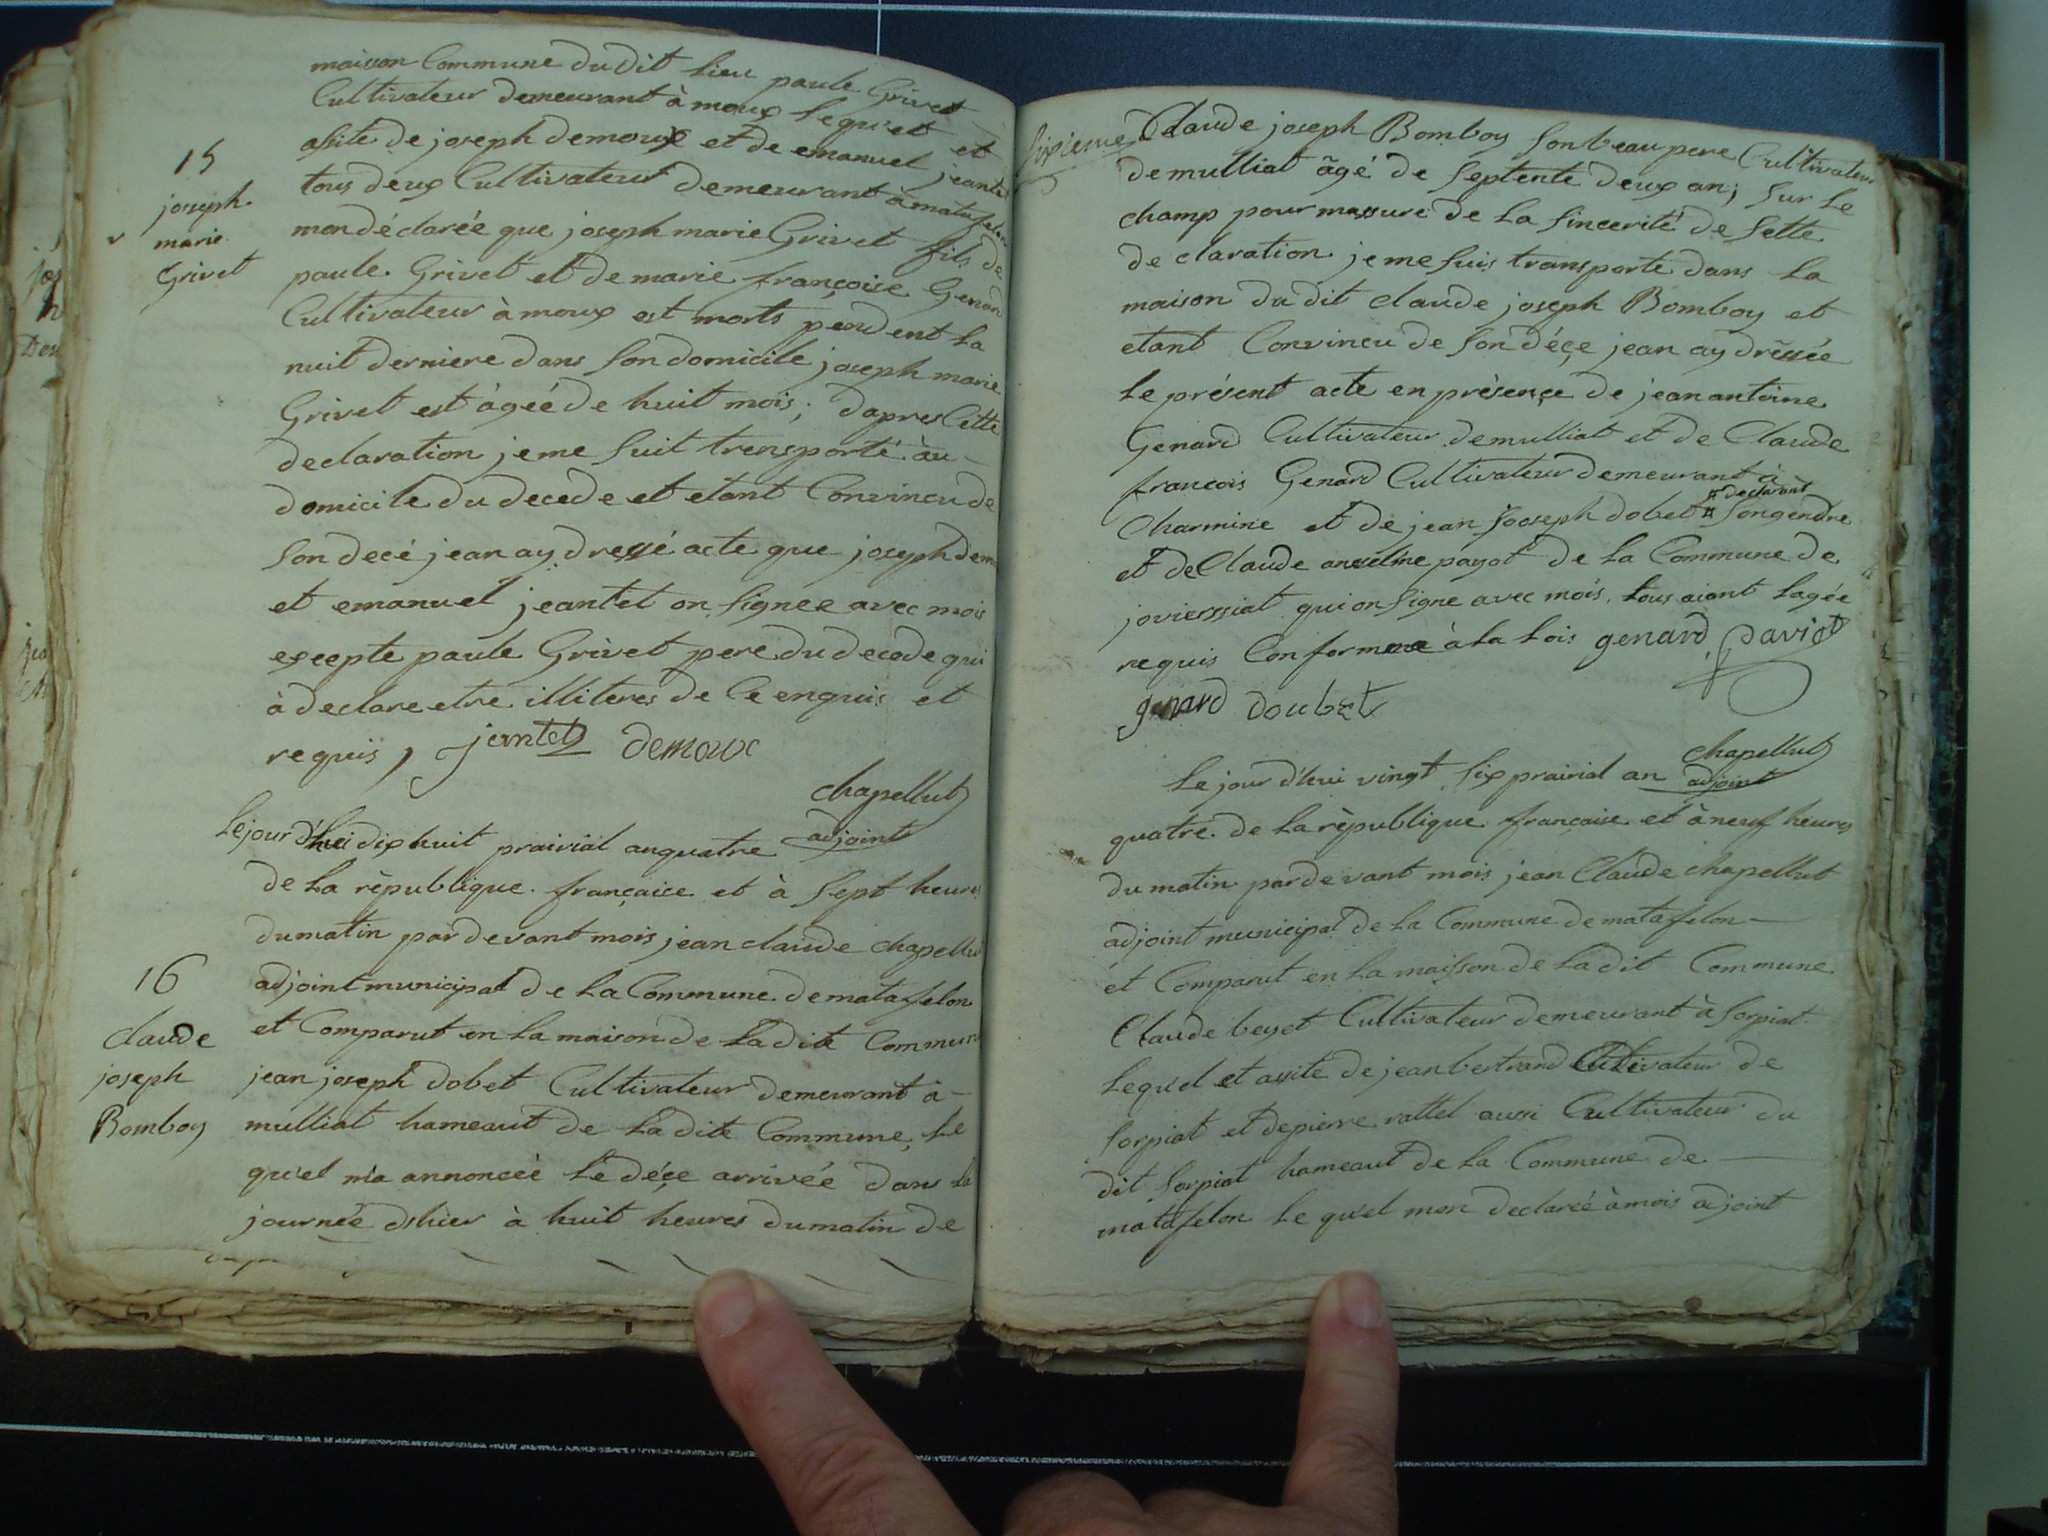 maison Commune du dit lieu paule Grivet
Cultivateur demeurant à moux lequ'et et
assite de joseph demoux et de emanuel jeantet
tous deux Cultivateur demeurant à matafelon
mon déclarée que joseph marie Grivet fils de
paule Grivet et de marie françoise Genan
Cultivateur à moux est morts pendent la
nuit derniere dans son domicile joseph marie
Grivet est âgéé de huit mois; dapres Cette
declaration je me suit trensporté au
domicile du decede et etant Convincu de
son decé jean ay dressé acte que joseph dem
et emanuel jeantet on signee avec mois
excepte paule Grivet pere du decede qui
à declare etre illiteres de Ce enquis et
requis, jentet demoux
chapellut
adjoint
15
joseph
marie
Grivet
Le jour d'hui dix huit prairial an quatre
de la rèpublique française et à sept heures
du matin par devant mois jean claude chapellut
adjoint municipal de la Commune de matafelon
et Comparut en la maison de la dite Commune
jean joseph dobet Cultivateur demeurant à
mulliat hameaut de la dite Commune, Le
qu'el m'a annoncéè le déçe arrivée dans la
journée dshier à huit heures du matin de
16
claude
joseph
Bomboy
sixieme
Claude joseph Bomboy son beau pere Cultivateur
de mulliat âgé de septente deux an; sur le
champ pour massuré de la sincerité de sette
declaration je me suis transporte dans la
maison du dit claude joseph Bomboy et
etant Convincu de son déçe jean ay dressée
le présent acte en présençe de jean antoine
Genard Cultivateur de mulliat et de Claude
francois Genard Cultivateur demeurant à
charmine et de jean Jooseph dobet # declarant # son gendre
et de Claude anselme payot de la Commune de
jovierssiat qui on signe avec mois, tous aiant lagée
requis Conformene à la Lois genard paviot
genard doubet
chapellut
adjoint
Le jour d'hui vingt six prairial an
quatre de la rèpublique française et à neuf heures
du matin par devant mois jean Claude chapellut
adjoint municipal de la Commune de matafelon
et Comparut en la maisson de la dit Commune
Claude beyet Cultivateur demeurant à sorpiat
Lequ'el et assite de jean bertrand Cultivateur de
sorpiat et de pierre rattel aussi Cultivateur du
dit sorpiat hameaut de la Commune de
matafelon le qu'el mon declareé à mois adjoint